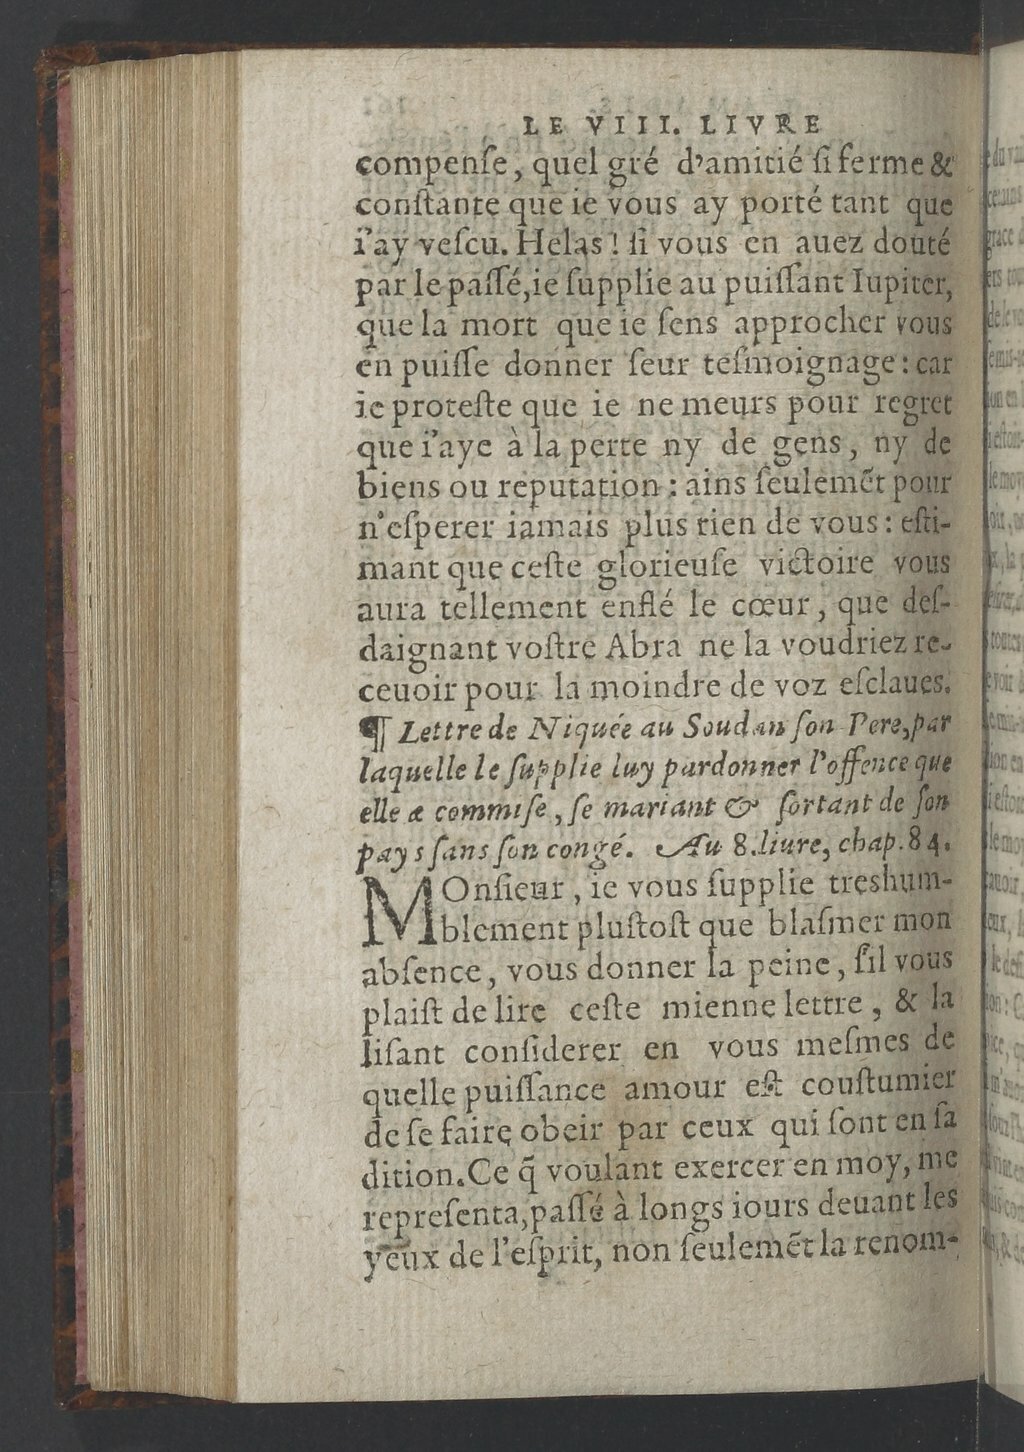 LE VIII. LIVRE
compenſe, quel gré d'amitié ſi ferme &
conſtante que ie vous ay porté tant que
i'ay veſcu. Helas! ſi vous en auez douté
par le paſſé, ie ſupplie au puiſſant Iupiter,
que la mort que ie ſens approcher vous
en puiſſe donner ſeur teſmoignage: car
ie proteſte que ie ne meurs pour regret
que i'aye à la perte ny de gens, ny de
biens ou reputation: ains ſeulemẽt pour
n'eſperer iamais plus rien de vous: eſti-
mant que ceſte glorieuſe victoire vous
aura tellement enflé le cœur, que deſ-
daignant voſtre Abra ne la voudriez re-
ceuoir pour la moindre de voz eſclaues.
¶ Lettre de Niquée au Soudan ſon Pere, par
laquelle le ſupplie luy pardonner l'offence que
elle a commiſe, ſe mariant & ſortant de ſon
pays ſans ſon congé. Au 8. liure, chap. 84.
MOnſieur, ie vous ſupplie treshum-
blement pluſtoſt que blaſmer mon
abſence, vous donner la peine, ſil vous
plaiſt de lire ceſte mienne lettre, & la
liſant conſiderer en vous meſmes de
quelle puiſſance amour eſt couſtumier
de ſe faire obeir par ceux qui ſont en ſa
dition. Ce q̃ voulant exercer en moy, me
repreſenta, paſſé à longs iours deuant les
yeux de l'eſprit, non ſeulemẽt la renom-